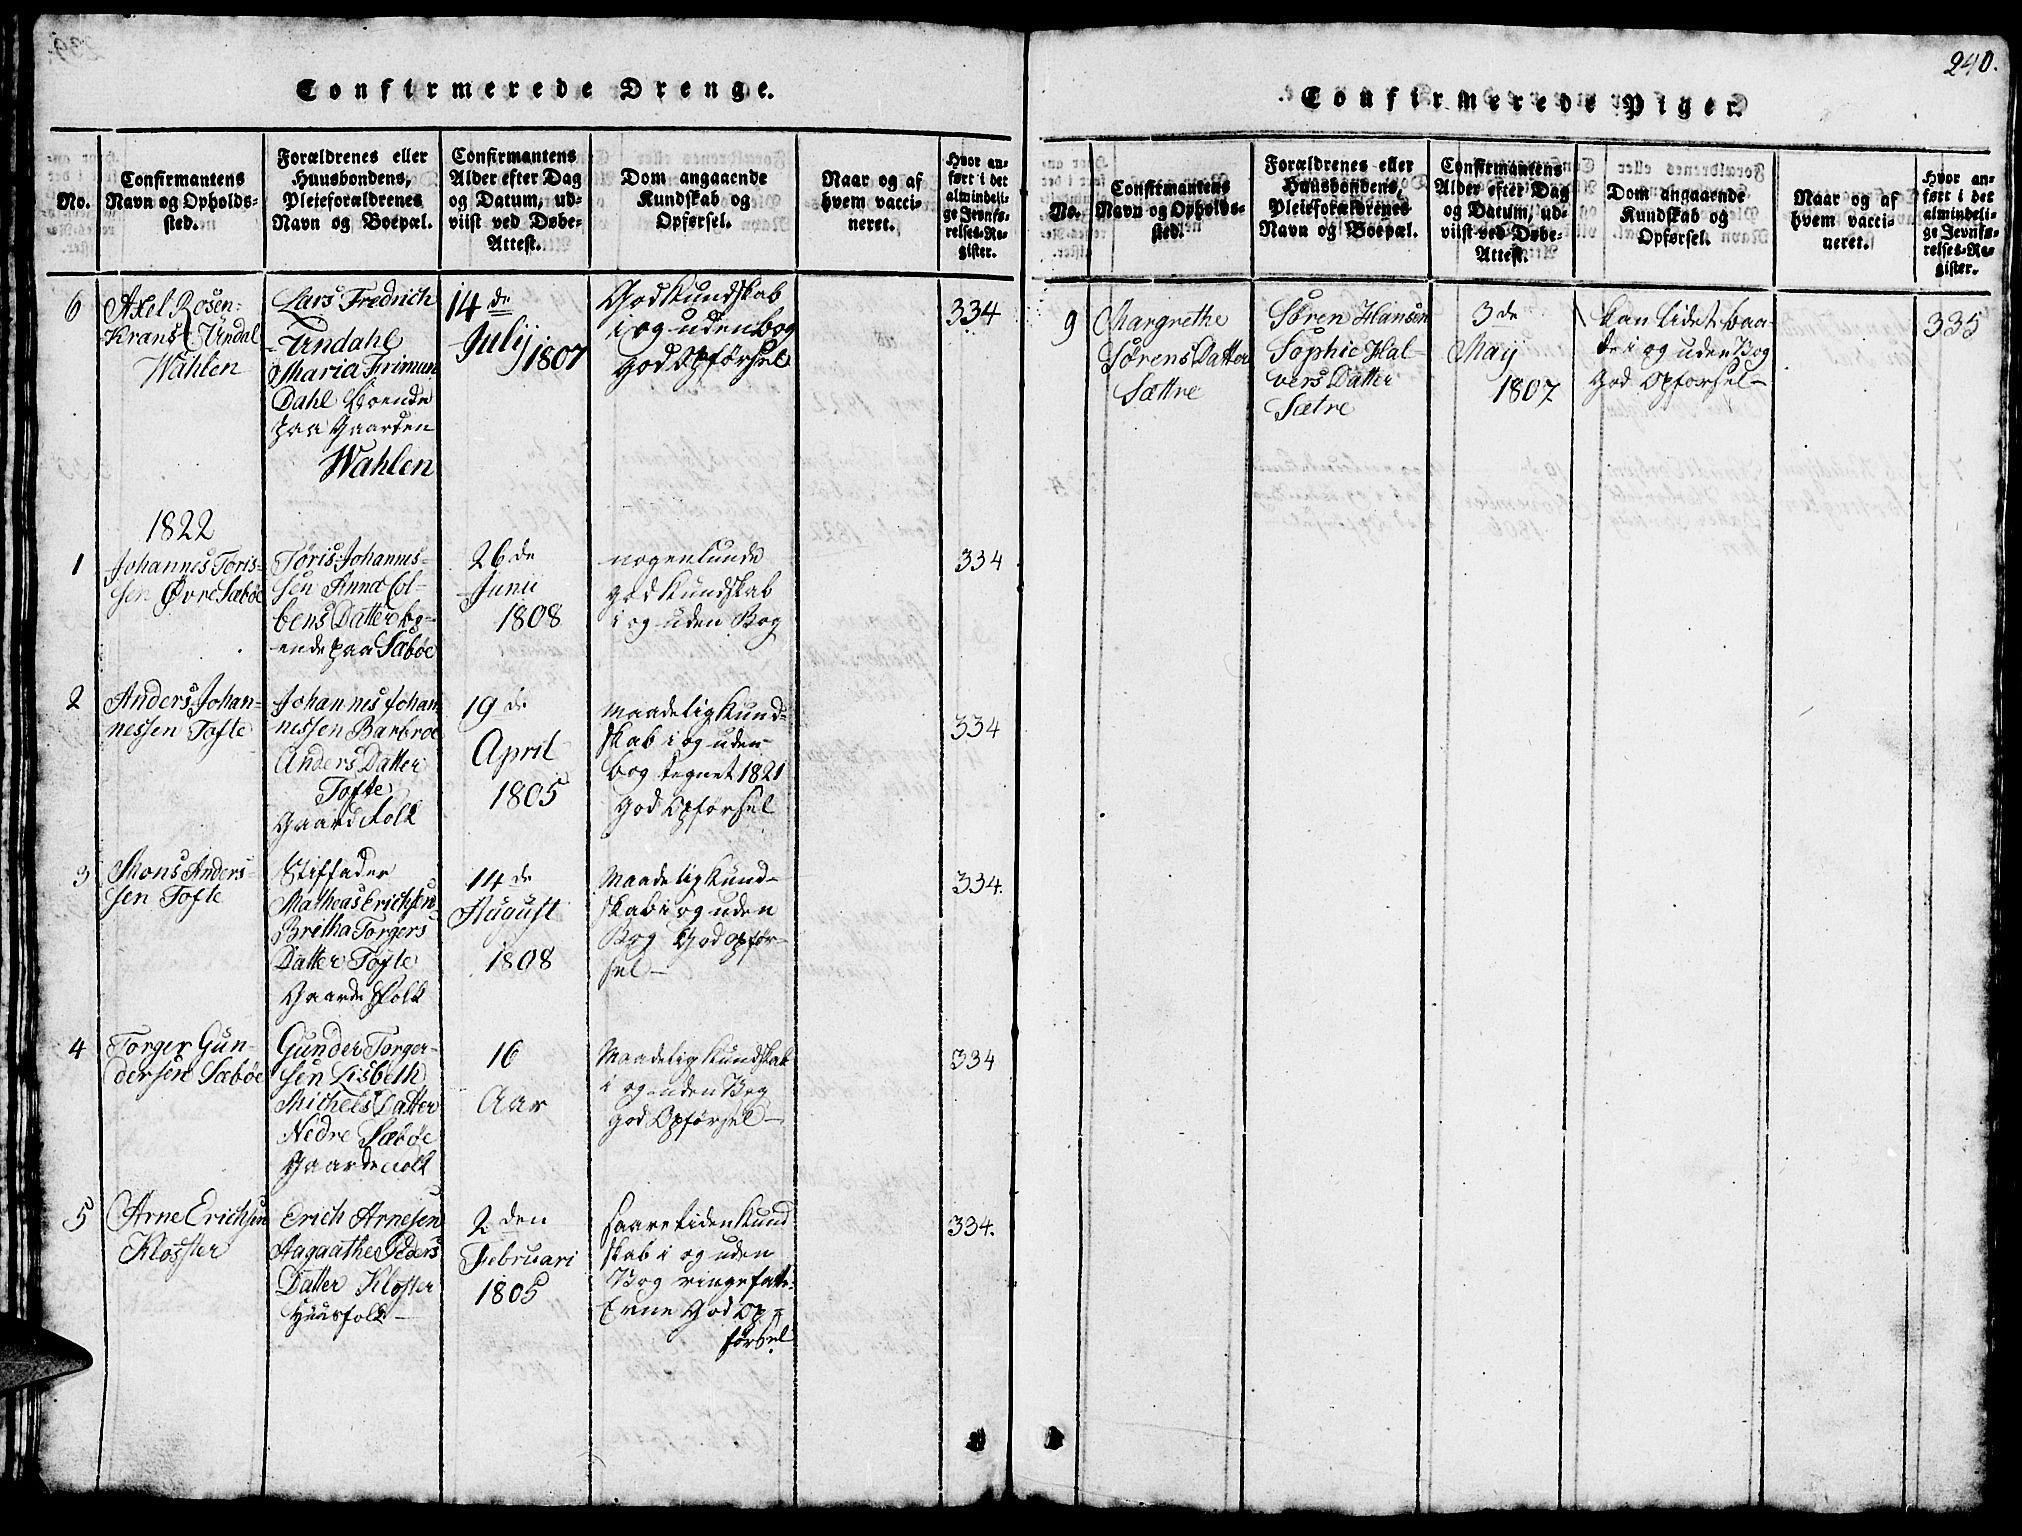 240.
Confirmerede Drenge.
No.
Confirmantens
Navn og Opholds-
sted.
Forældrenes eller
Huusbondens,
Pleieforældrenes
Navn og Boepæl.
Confirmantens
Alder efter Dag
og Datum, ud-
viist ved Døbe-
Attest.
Dom angaaende
Kundskab og
Opførsel.
Naar og af
hvem vacci-
neret.
Hvor an-
ført i det
almindeli-
ge Jevnfø-
relses-Re-
gister.
6
Axel Rosen-
Krans Undal
Wahlen
Lars Fredrich
Undahl
Maria Frimun
Dahl Boende
paa Gaarden
Wahlen
14 de
Julij
1807
God Kundskab
i og uden bog
god Opførsel
334
1822
1
Johannes Toris-
sen Øvre Sæbøe
Toris Johannes-
sen Anna Col-
bens Datter bo-
ende paa Sæbøe
26 de
Junii
1808
nogenlunde
god Kundskab
i og uden Bog
334
2
Anders Johan-
nessen Tofte
Johannes Johan
nessen Barbroe
Anders Datter
Tofte
Gaard Folk
19 de
April
1805
maadelig Kund-
skab i og uden-
bog tegnet 1821
God Opførsel
334
3
Mons Anders-
sen Tofte
Stiffader
Matheas Erichsen
Bretha Torgers
Datter Tofte
Gaarde Folk
14 de
August
1808
Maadelig Kund-
skab i og uden
Bog God opfør-
sel-
334.
4
Torger Gun-
dersen Sæbøe
Gunder Torger-
sen Lisbeth
Michels Datter
Nedre Sæbøe
Gaarde Folk
16
Aar
Maadelig Kundskab
i og uden Bog
god Opførsel-
334
5
Arne Erichsen
Kloster
Erich Arnesen
Aagaathe Peders
Datter Kloster
Huusfolk-
2 den
Februari
1805
saare liden Kund
skab i og uden
Bog ringe fatte-
Evne God Op-
førsel
334.
Confirmerede Piger.
No.
Confirmantens
Navn og Opholds-
sted.
Forældrenes eller
Huusbondens,
Pleieforældrenes
Navn og Boepæl.
Confirmantens
Alder efter Dag
og Datum, ud-
viist ved Døbe-
Attest.
Dom angaaende
Kundskab og
Opførsel.
Naar og af
hvem vacci-
neret.
Hvor an-
ført i det
almindeli-
ge Jevnfø-
relses-Re-
gister.
9
Margrethe
Sørens Datter
Sættre
Søren Hansen
Sophie Hal-
vers Datter
Sætre
3 de
May
1807
kan lidet baa-
de i og uden Bog
God Opførsel-
335